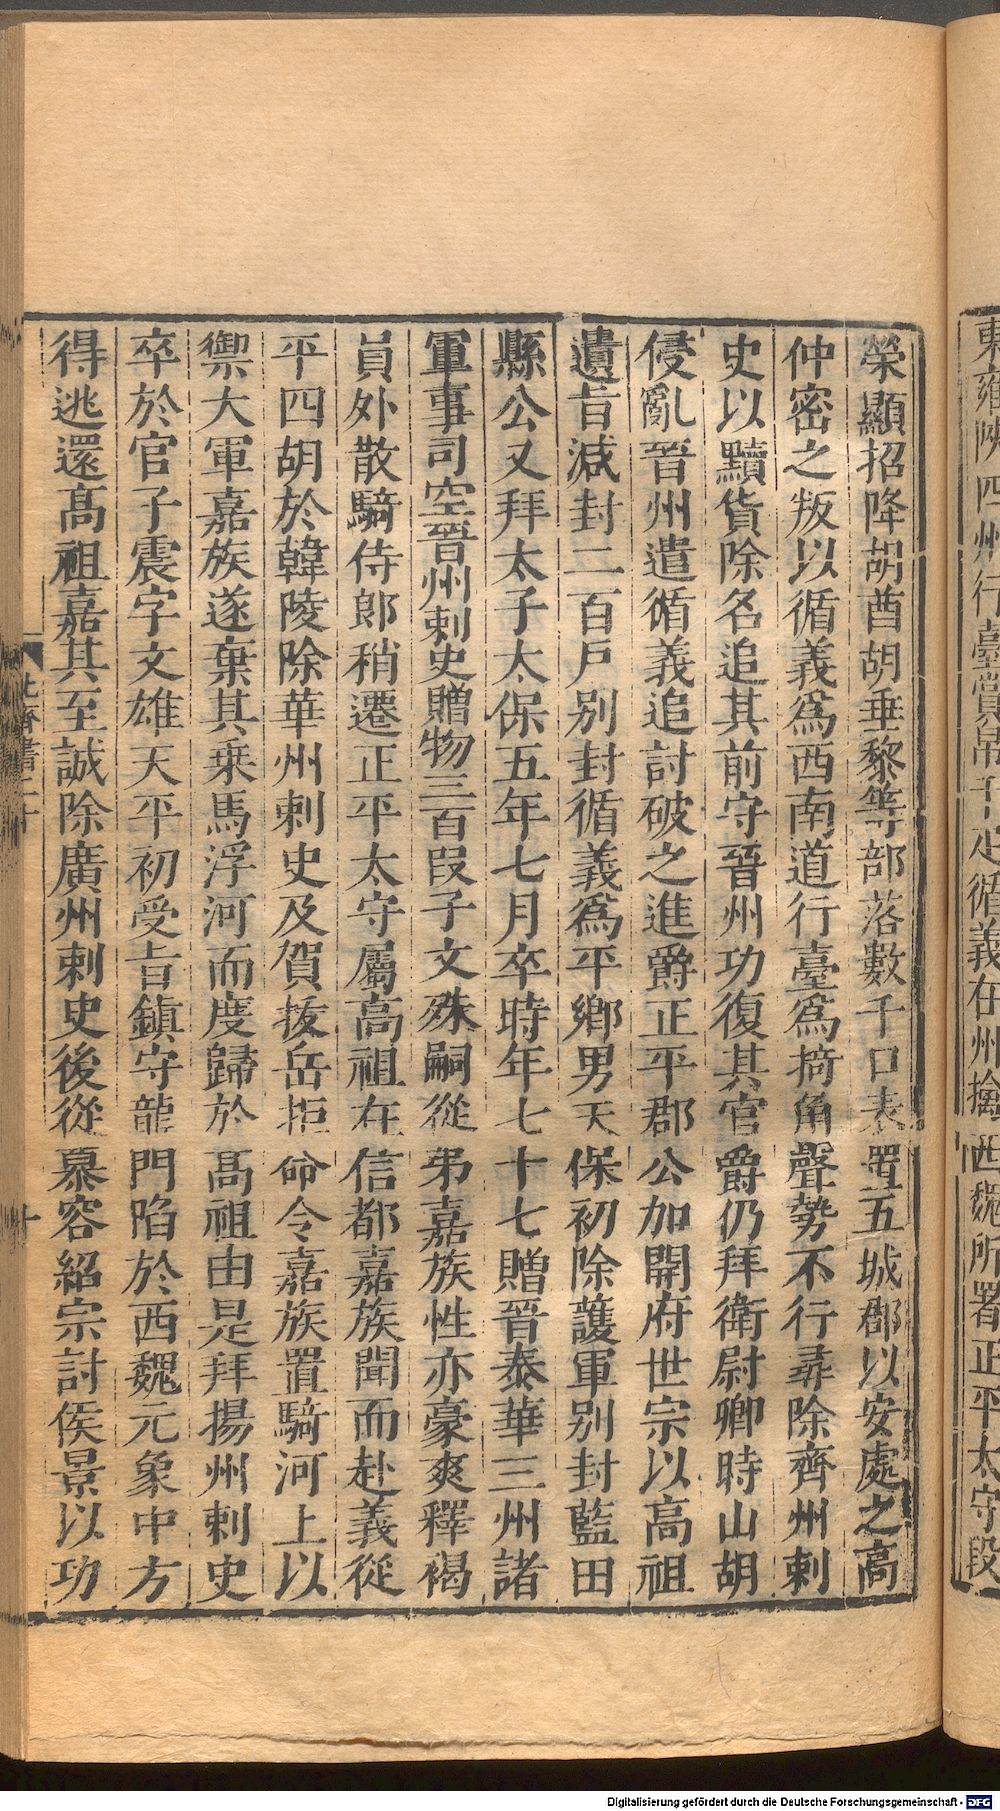 東雍陝四州行臺賞帛千疋循義在州擒西魏所署正平太守段
榮顯招降胡酋胡垂黎等部落數千口表置五城郡以安處之高
仲密之叛以循義爲西南道行臺爲掎角聲勢不行尋除齊州刺
史以黷貨除名追其前守晉州功復其官爵仍拜衛尉卿時山胡
侵亂晉州遣循義追討破之進爵正平郡公加開府世宗以高祖
遺旨減封二百戶別封循義爲平鄉男天保初除護軍別封藍田
縣公又拜太子太保五年七月卒時年七十七贈晉泰華三州諸
軍事司空晉州刺史贈物三百段子文殊嗣從弟嘉族性亦豪爽釋褐
員外散騎侍郎稍遷正平太守屬高祖在信都嘉族聞而赴義從
平四胡於韓陵除華州刺史及賀拔岳拒命令嘉族置騎河上以
禦大軍嘉族遂棄其乘馬浮河而度歸於高祖由是拜揚州刺史
卒於官子震字文雄天平初受旨鎮守龍門陷於西魏元象中方
得逃還高祖嘉其至誠除廣州刺史後從慕容紹宗討侯景以功
北齊書二十
十
Digitalisierung gefördert durch die Deutsche Forschungsgemeinschaft - DFG